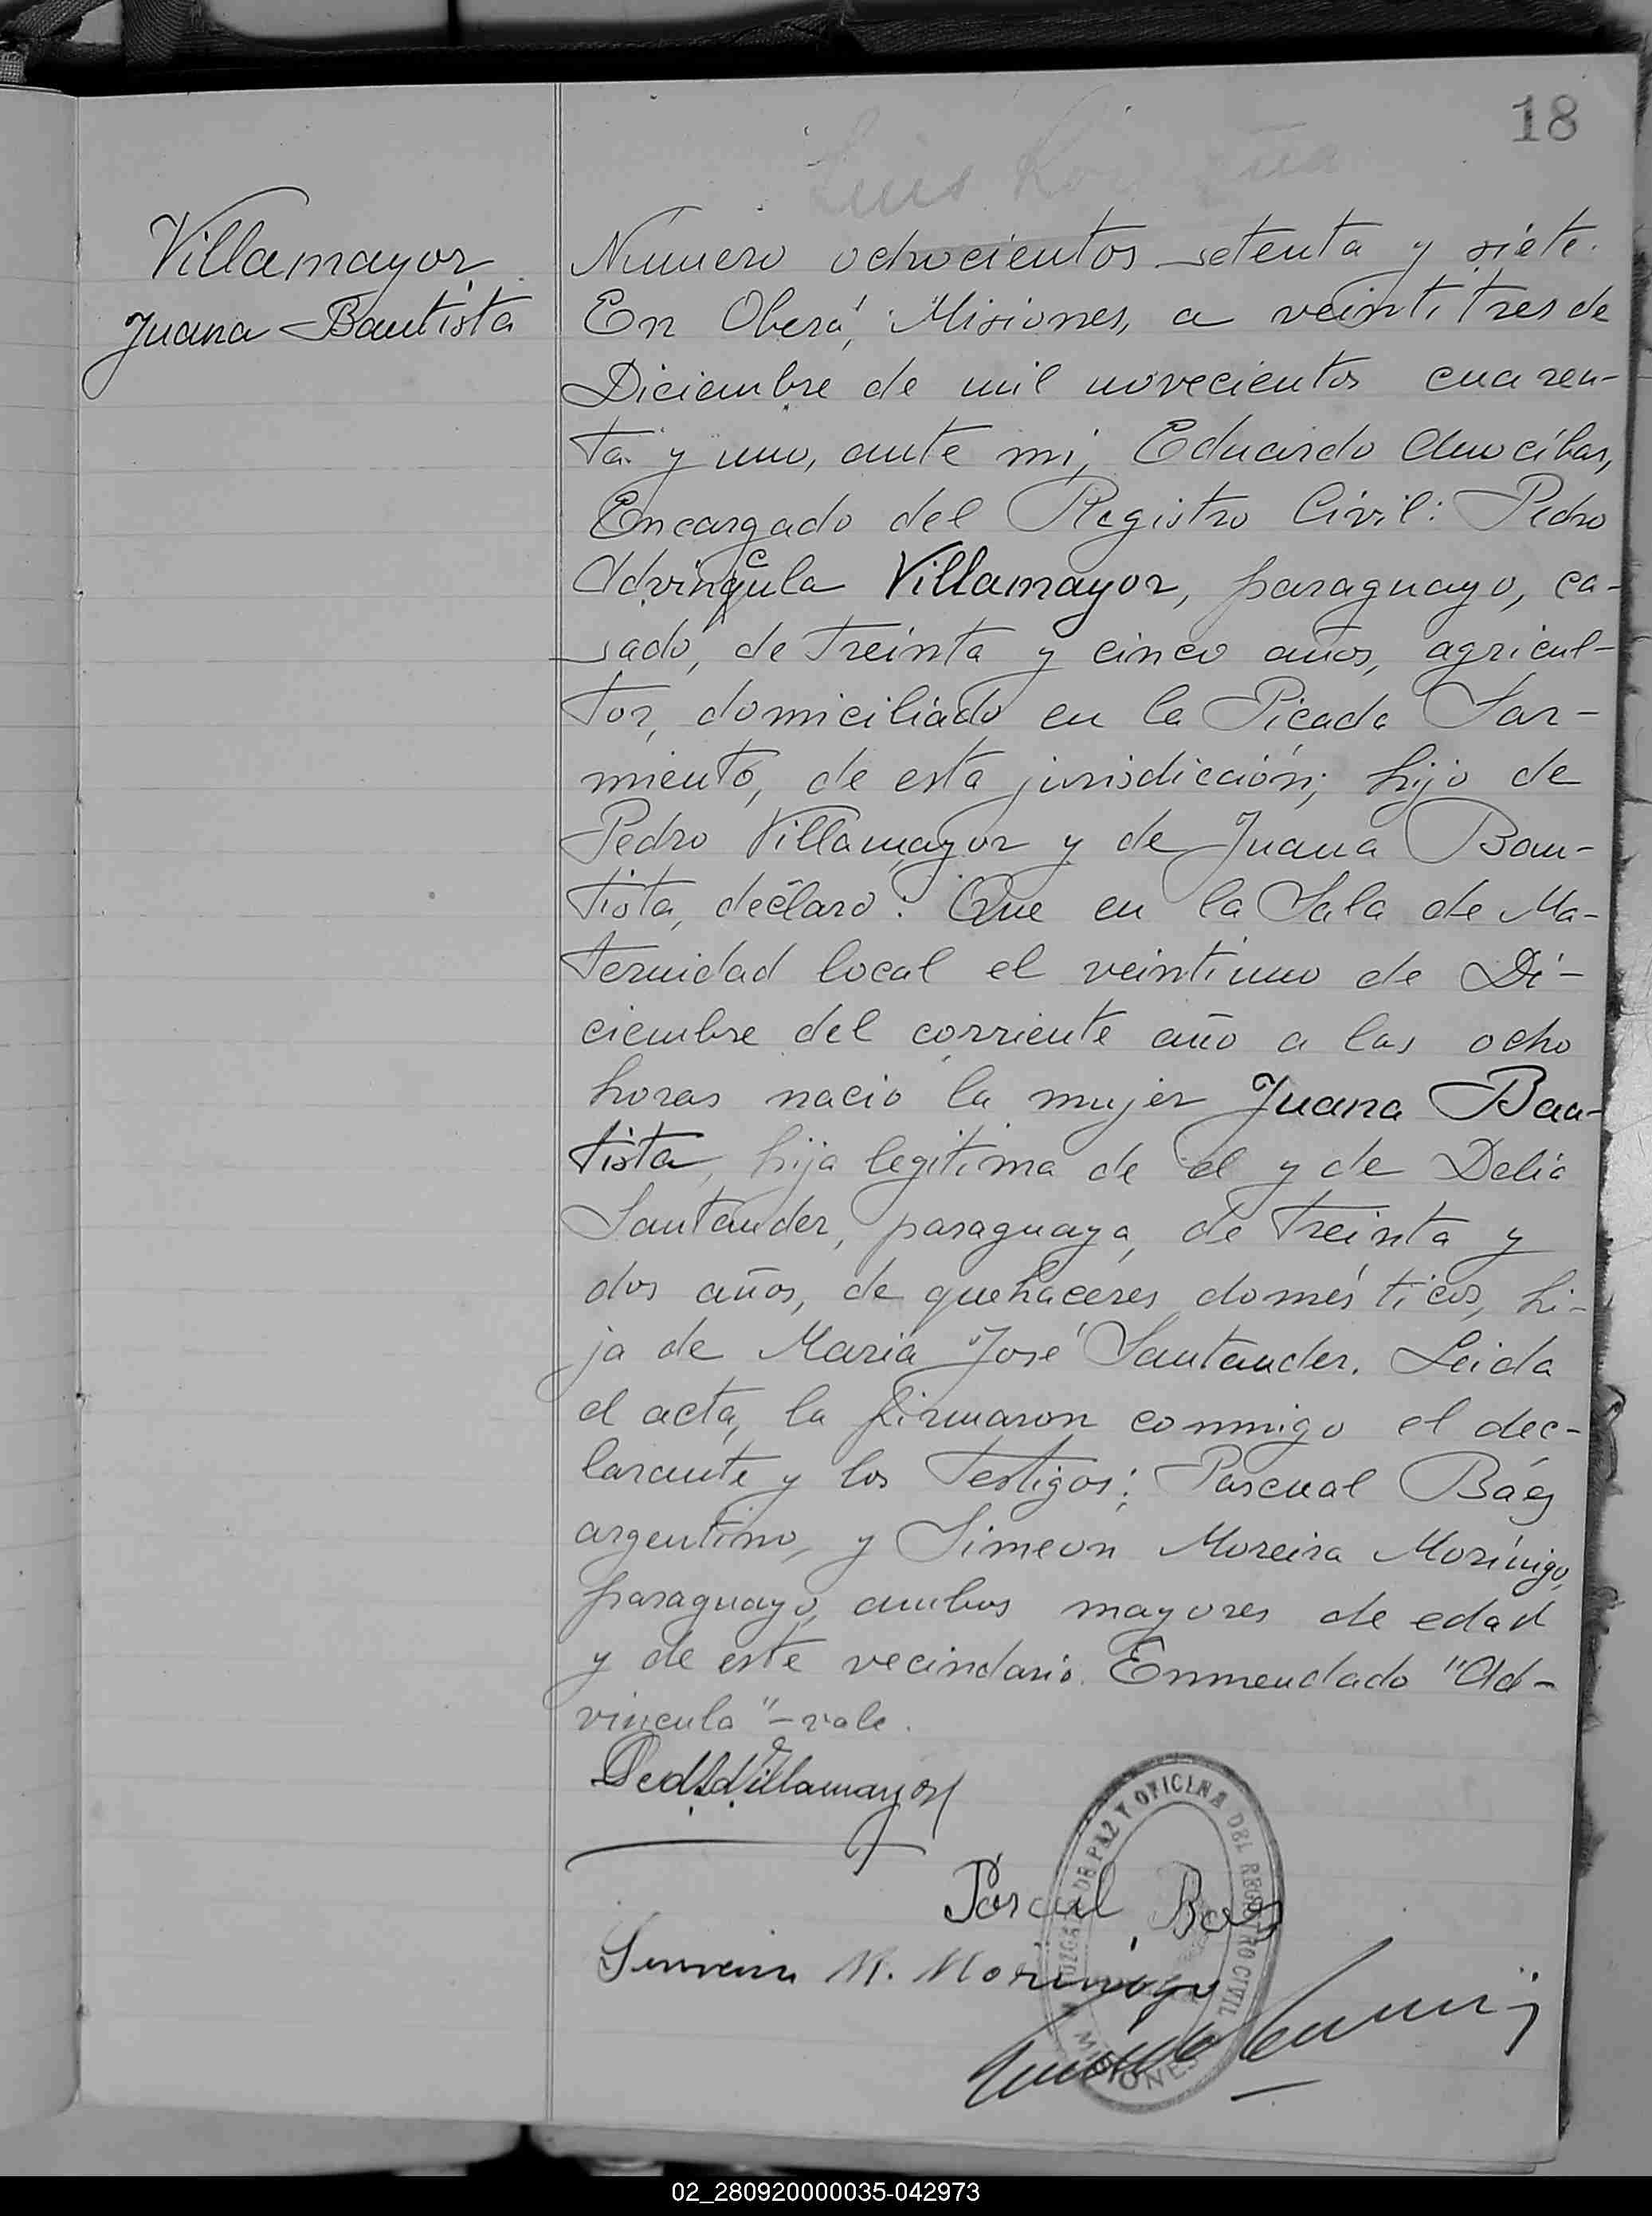 18
Luis
Villamayor
Juana Bautista
Numero ochocientos setenta y siete.
En Oberá, Misiones, a veintitres de
Diciembre de mil novecientos cuaren-
ta y uno, ante mi, Eduardo Anocíbar,
Encargado del Registro Civil: Pedro
Advincula Villamayor, paraguayo, ca-
sado, de treinta y cinco años, agricul-
tor, domiciliado en la Picada Sar-
miento, de esta jurisdicción; hijo de
Pedro Villamayor y de Juana Bau-
tista, declaro: Que en la Sala de Ma-
ternidad local el veintiuno de Di-
ciembre del corriente año a las ocho
horas nacio la mujer Juana Bau-
tista, hija legitima de el y de Delia
Santander, paraguaya, de treinta y
dos años, de quehaceres domésticos, hi-
ja de María José Santander. Leida
el acta, la firmaron conmigo el dec-
larante y los testigos: Pascual Báez
argentino, y Simeon Moreira Morínigo,
paraguayo, ambos mayores de edad
y de este vecindario. Enmendado "Ad-
vincula" - vale.
Villamayor
Pascual Baez
M. Morinigo
JUZGADO DE PAZ Y OFICINA DEL REGISTRO CIVIL
MISIONES
02_280920000035-042973